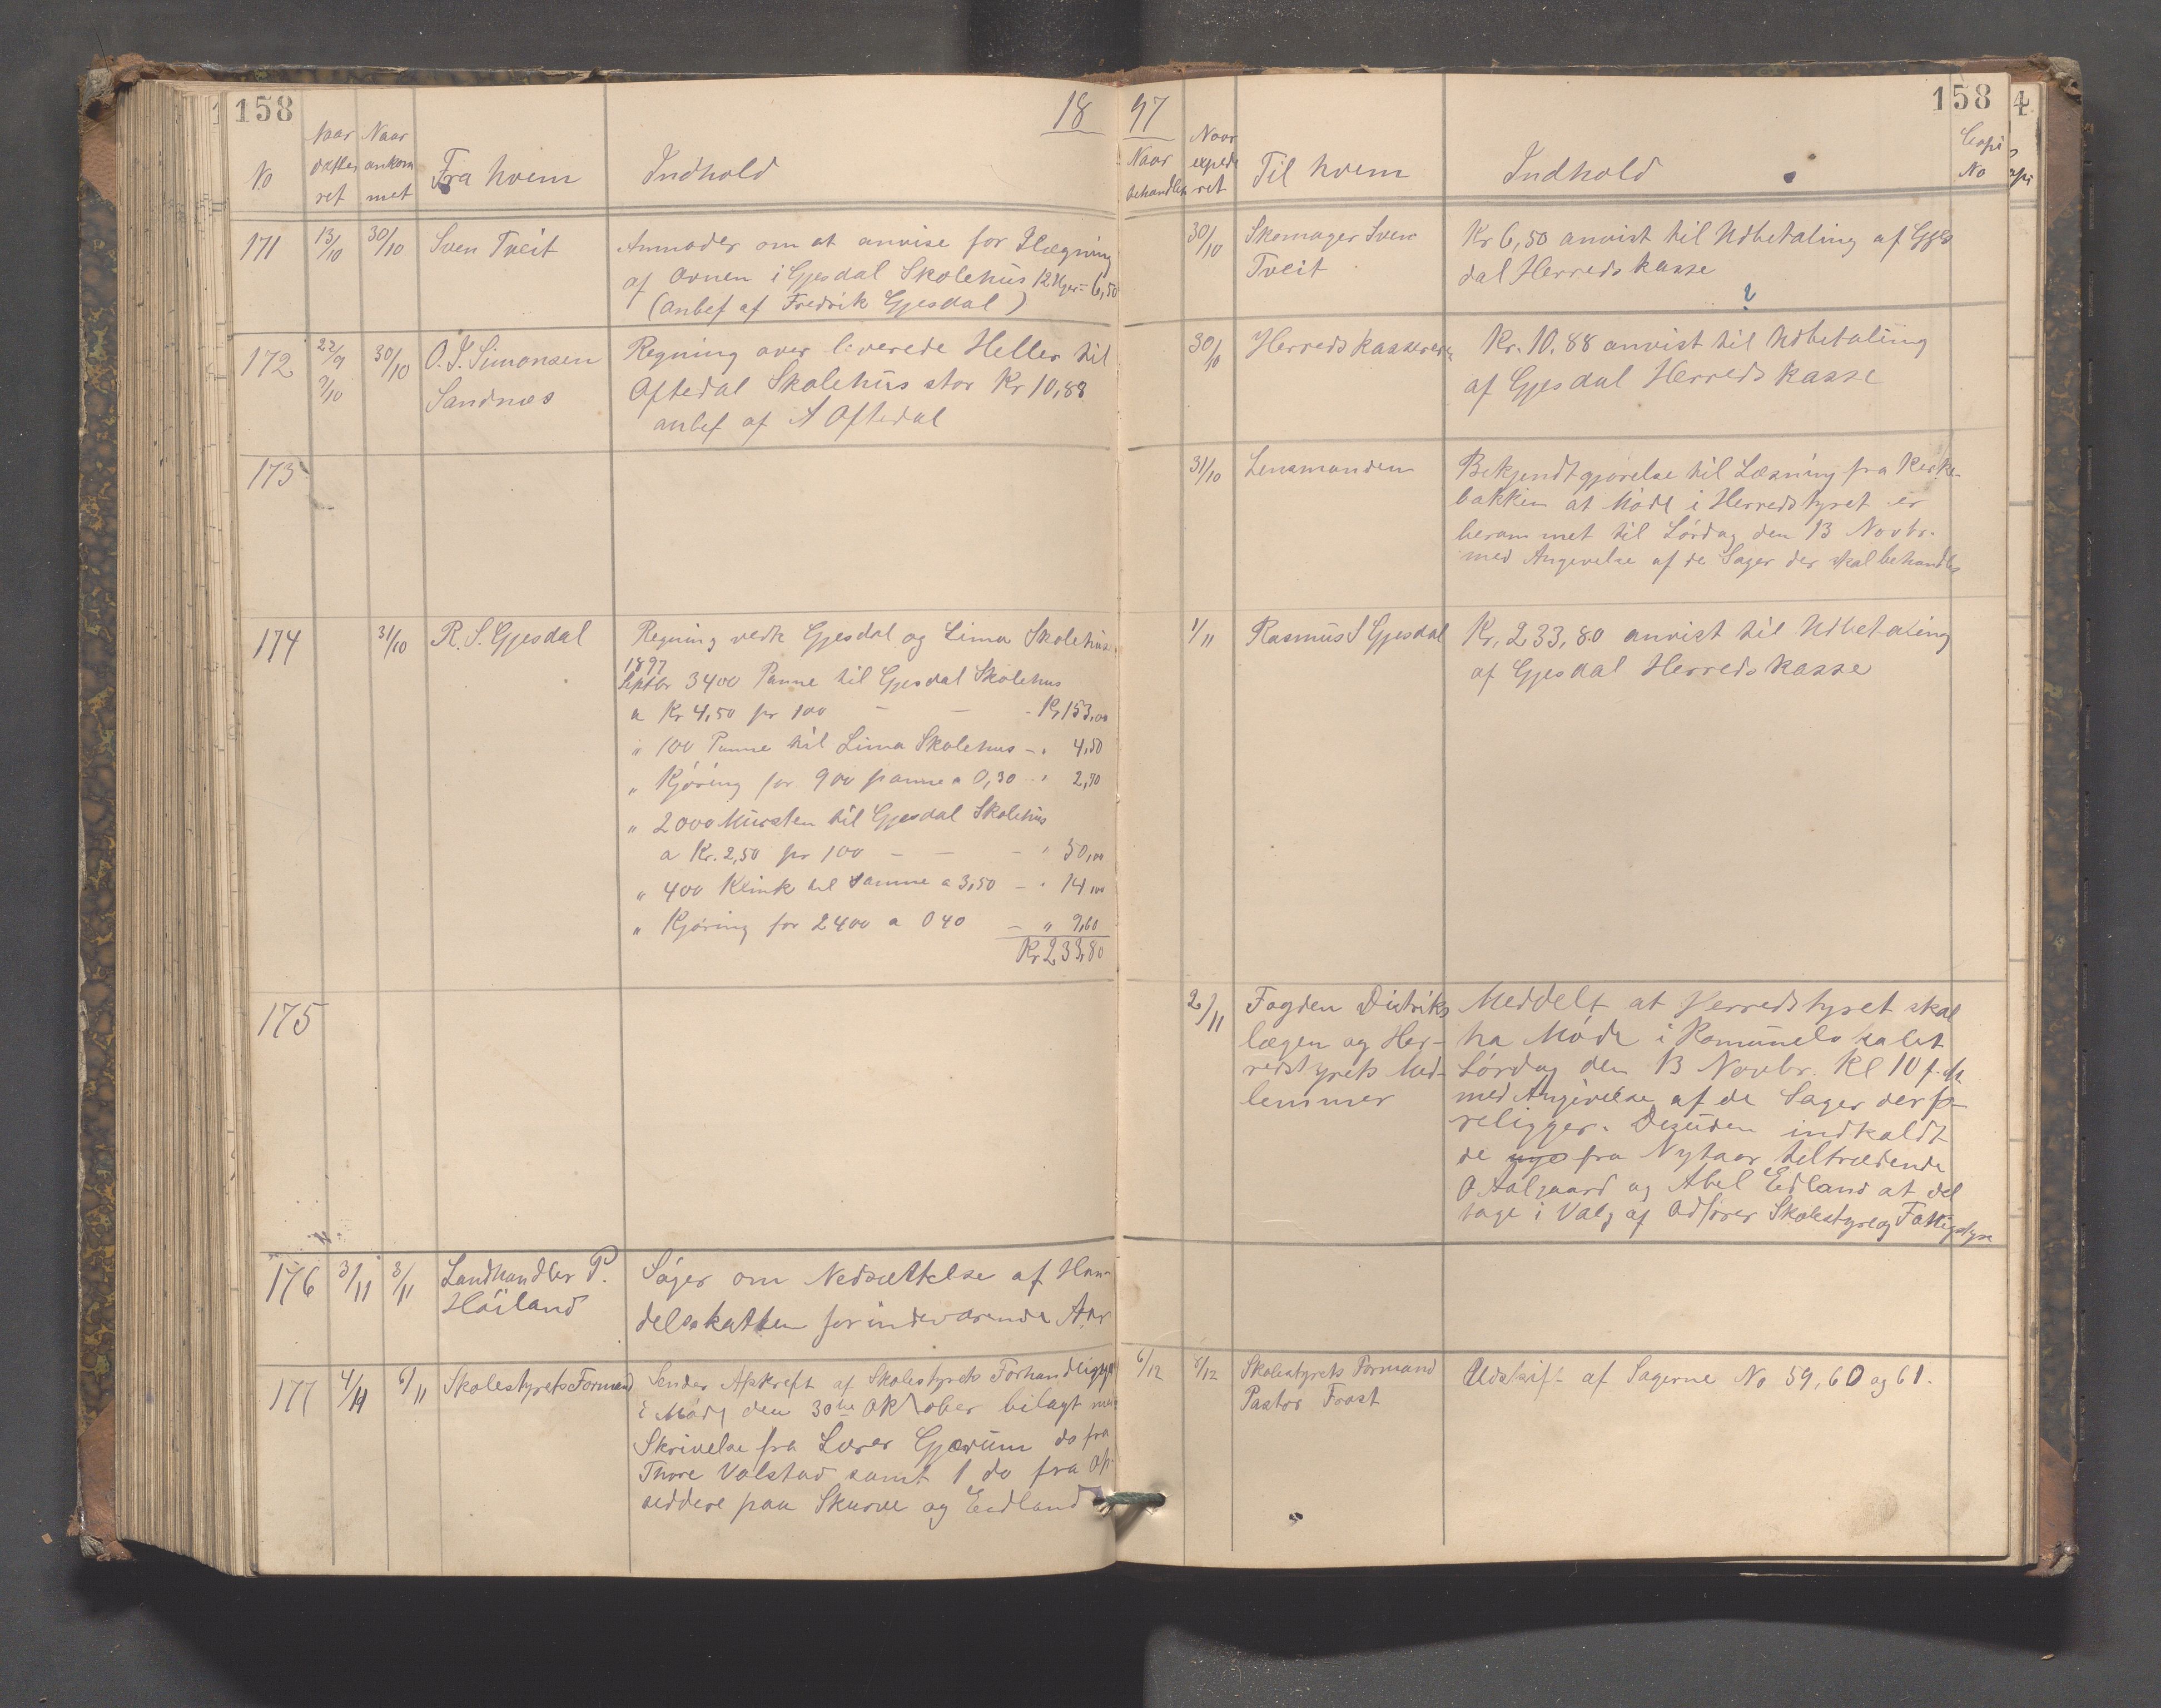 158
18
No
Naar datteret
Naar ankommet
Fra hvem
Indhold
171
13/10
30/10
Sven Tveit
Anmoder om at anvise for Ilægning
af Ovnen i Gjesdal Skolehus 12 Uger = 6,50
(anbef af Fredrik Gjesdal)
172
22/9
7/10
30/10
O. J. Simonsen
Sandnæs
Regning over leverede Heller til
Oftedal Skolehus stor Kr 10,88
anbef af A Oftedal
173
174
31/10
R. S. Gjesdal
Regning vedk Gjesdal og Lima Skolehus
1897
Septbr 3400 Panne til Gjesdal Skolehus
a Kr 4,50 pr 100 - - - Kr 153,00
" 100 Panne til Lima Skolehus - " 4,50
" Kjøring for 900 panne a 0,30 - " 2,70
" 2000 Mursten til Gjesdal Skolehus
a Kr. 2,50 pr 100 - - - " 50,00
" 400 Klink til samme a 3,50 - " 14,00
" Kjøring for 2400 a 0 40 - " 9,60
Kr 233,80
175
176
3/11
3/11
Landhandler P.
Høiland
Søger om Nedsættelse af Han-
delsskatten for indeværende Aar
177
4/11
6/11
Skolestyrets Formand
Sender Afskrift af Skolestyrets
i Møde den 30te Oktober bilagt med
Skrivelse fra Lærer Gjærum do fra
Thore Valstad samt 1 do fra Op-
siddere paa Skurve og Eidland
97
158
Naar behandlet
Naar expederet
Til hvem
Indhold
Copi No
30/10
Skomager Sven
Tveit
Kr 6,50 anvist til Udbetaling af Gjes
dal Herredskasse
30/10
Herredskassereren
Kr. 10.88 anvist til Udbetaling
af Gjesdal Herredskasse
31/10
Lensmanden
Bekjendtgjørelse til Læsning fra Kirke-
bakken at Møde i Herredstyret er
berammet til Lørdag den 13 Novbr.
med Angivelse af de Sager der skal behandles
1/11
Rasmus S Gjesdal
Kr. 233,80 anvist til Udbetaling
af Gjesdal Herredskasse
2/11
Fogden Distrikts
lægen og Her-
redstyrets Med-
lemmer
Meddelt at Herredstyret skal
ha Møde i Komunelokalet
Lørdag den 13 Novbr. Kl 10 f.m
med Angivelse af de Sager der fo-
religger. Desuden indkaldt
de nye fra Nytaar tiltrædende
O Aalgaard og Abel Edland at del
tage i Valg af Ordfører Skolestyre og Fattigstyre
6/12
8/12
Skolestyrets Formand
Pastor Frost
Udskrift af Sagerne No 59, 60 og 61.